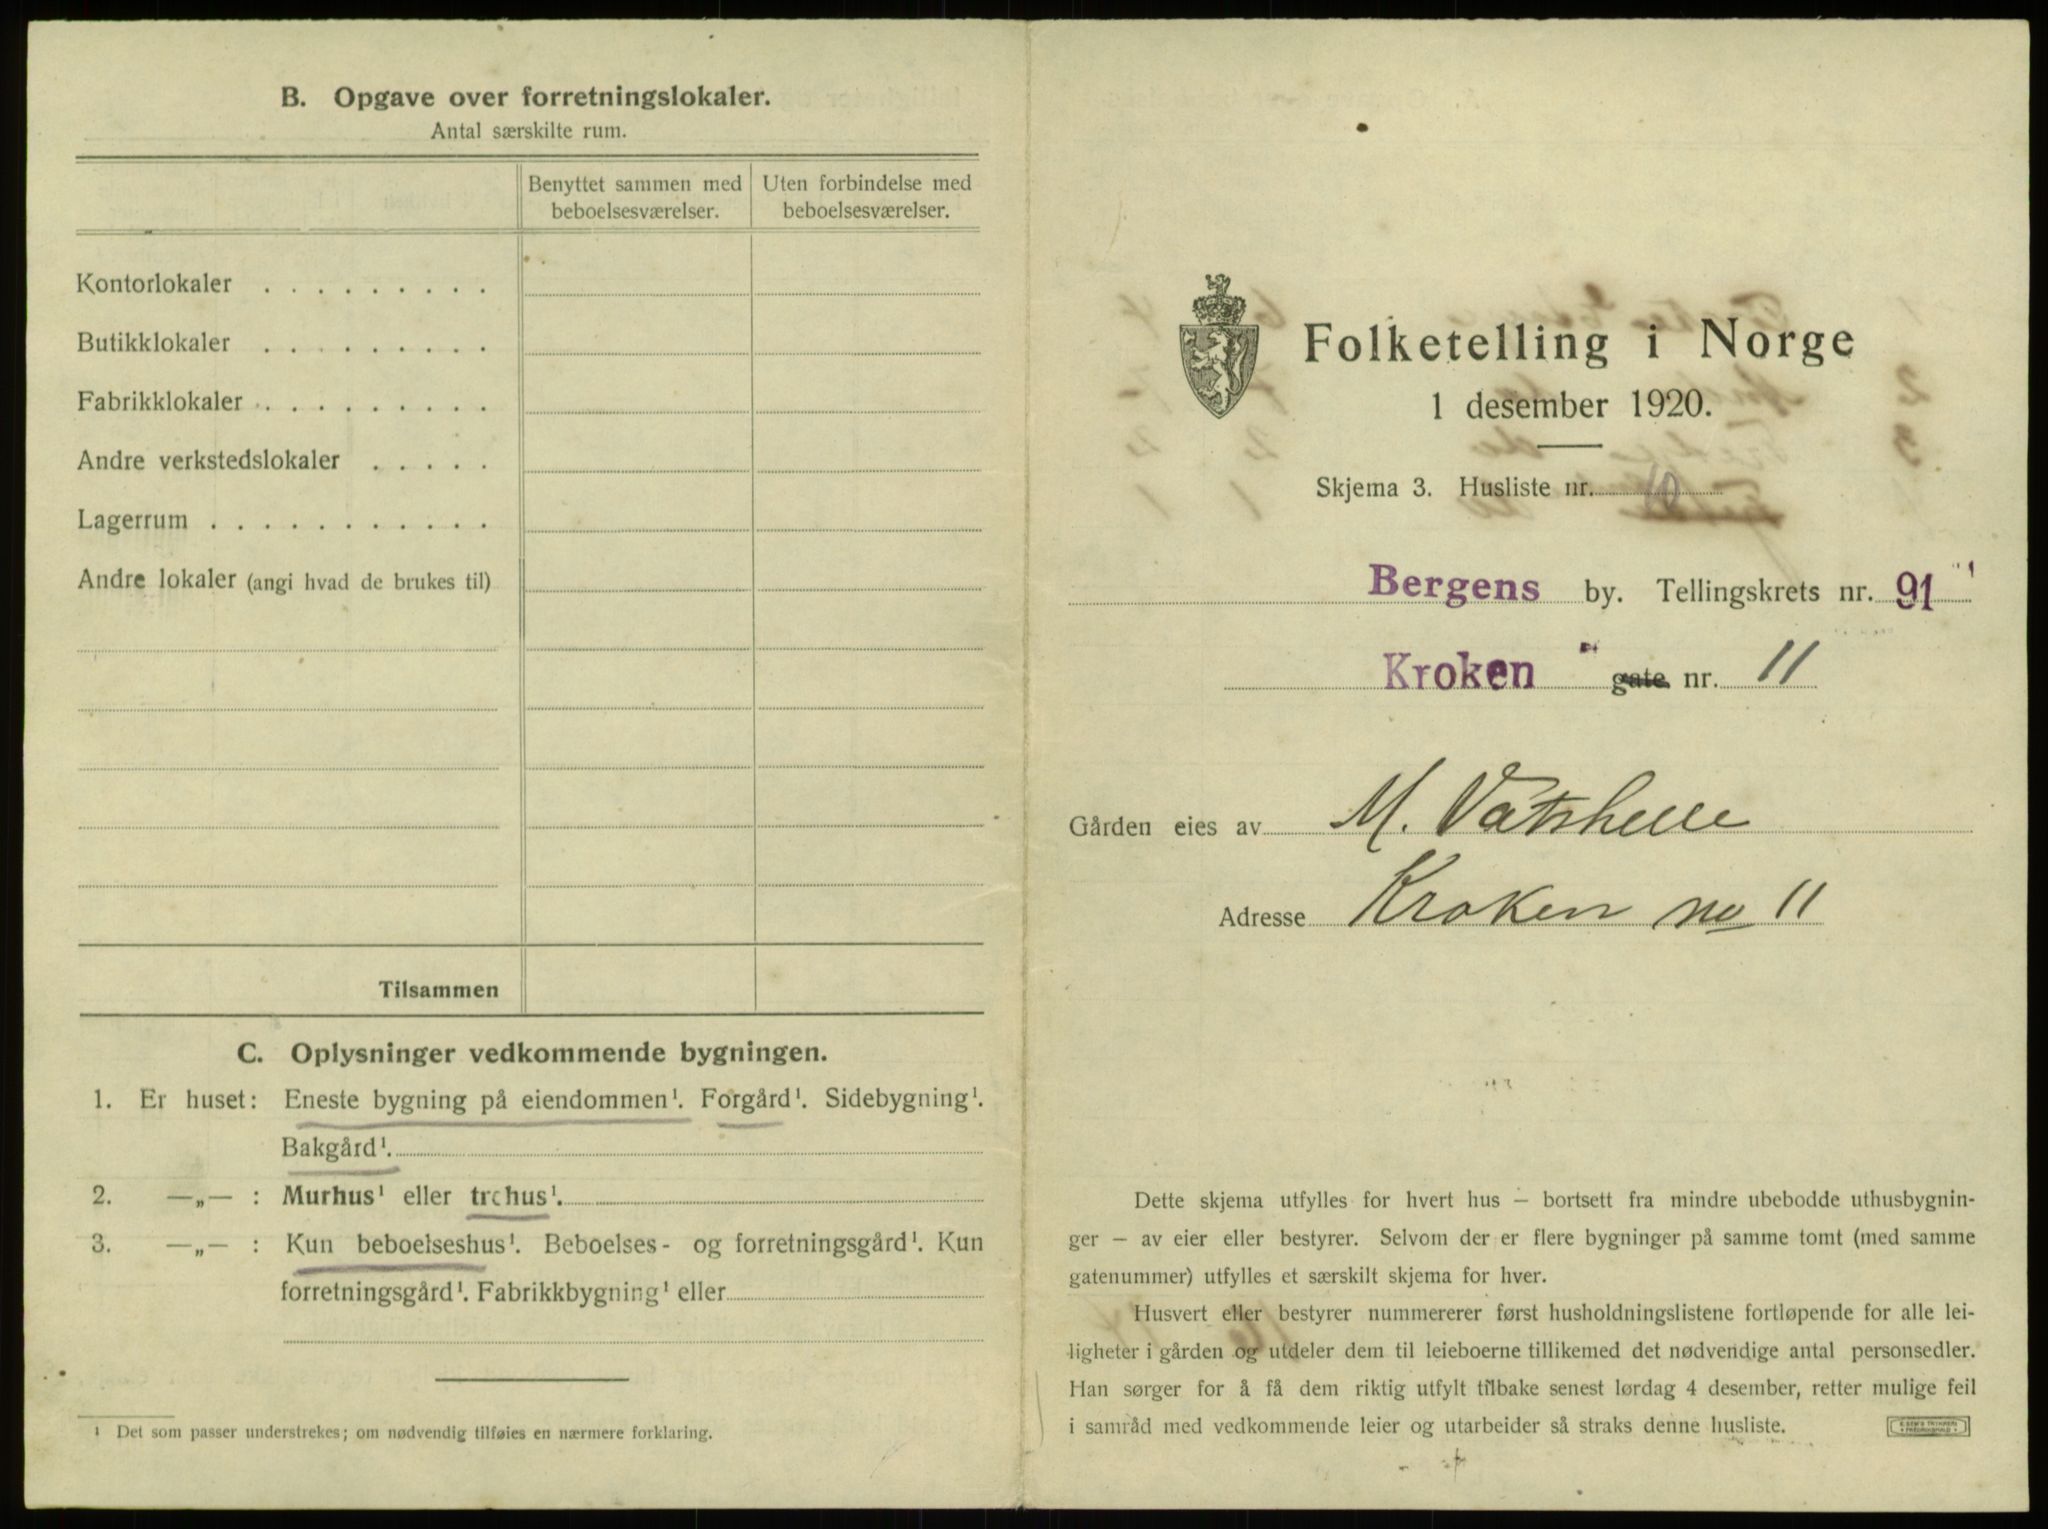 B. Opgave over forretningslokaler.
Antal særskilte rum.
Benyttet sammen med beboelsesværelser.
Uten forbindelse med beboelsesværelser.
Kontorlokaler . . . . . . . . .
Butikklokaler . . . . . . . . .
Fabrikklokaler . . . . . . . . .
Andre verkstedslokaler . . . . .
Lagerrum . . . . . . . . . . .
Andre lokaler (angi hvad de brukes til)
Tilsammen
C. Oplysninger vedkommende bygningen.
1. Er huset: Eneste bygning på eiendommen¹. Forgård¹. Sidebygning¹.
Bakgård¹.
2. —„— : Murhus¹ eller trehus¹.
3. —„— : Kun beboelseshus¹. Beboelses- og forretningsgård¹. Kun
forretningsgård¹. Fabrikkbygning¹ eller
¹ Det som passer understrekes; om nødvendig tilføies en nærmere forklaring.
Folketelling i Norge
1 desember 1920.
Skjema 3. Husliste nr. 10
Bergens by. Tellingskrets nr. 91
Kroken gate nr. 11
Gården eies av M. Vatshelle
Adresse Kroken no 11
Dette skjema utfylles for hvert hus — bortsett fra mindre ubebodde uthusbygnin-
ger — av eier eller bestyrer. Selvom der er flere bygninger på samme tomt (med samme
gatenummer) utfylles et særskilt skjema for hver.
Husvert eller bestyrer nummererer først husholdningslistene fortløpende for alle lei-
ligheter i gården og utdeler dem til leieboerne tillikemed det nødvendige antal personsedler.
Han sørger for å få dem riktig utfylt tilbake senest lørdag 4 desember, retter mulige feil
i samråd med vedkommende leier og utarbeider så straks denne husliste.